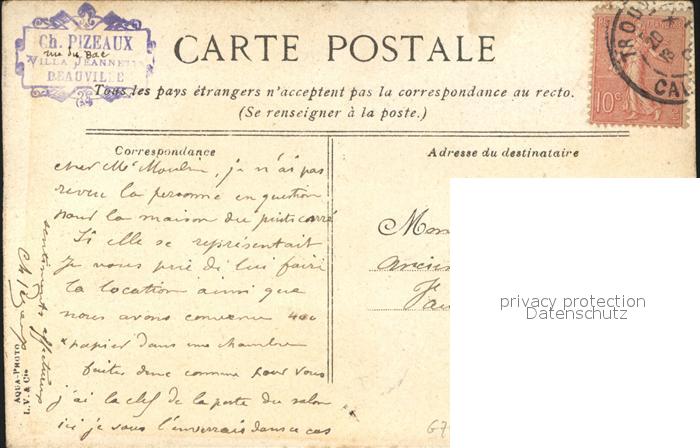 Ch. PIZEAUX
rue du Bac
VILLA JEANNETTE
DEAUVILLE
CARTE POSTALE
Tous les pays étrangers n'acceptent pas la correspondance au recto.
(Se renseigner à la poste.)
10c
TROU
CAL
Correspondance
cher Mr Moulin, je n'ai pas
revu la personne en question
pour la maison du puits carré
Si elle se représentait
Je vous prie de lui faire
la location ainsi que
nous avons convenu 400
papier dans une chambre
faites donc comme pour vous
j'ai la clef de la porte du salon
ici je vous l'enverrais dans ce cas
sentiments affectueux
Ch Pizeaux
AQUA-PHOTO
L. V. & Cie
Adresse du destinataire
Mon
ancien
privacy protection
Datenschutz
67